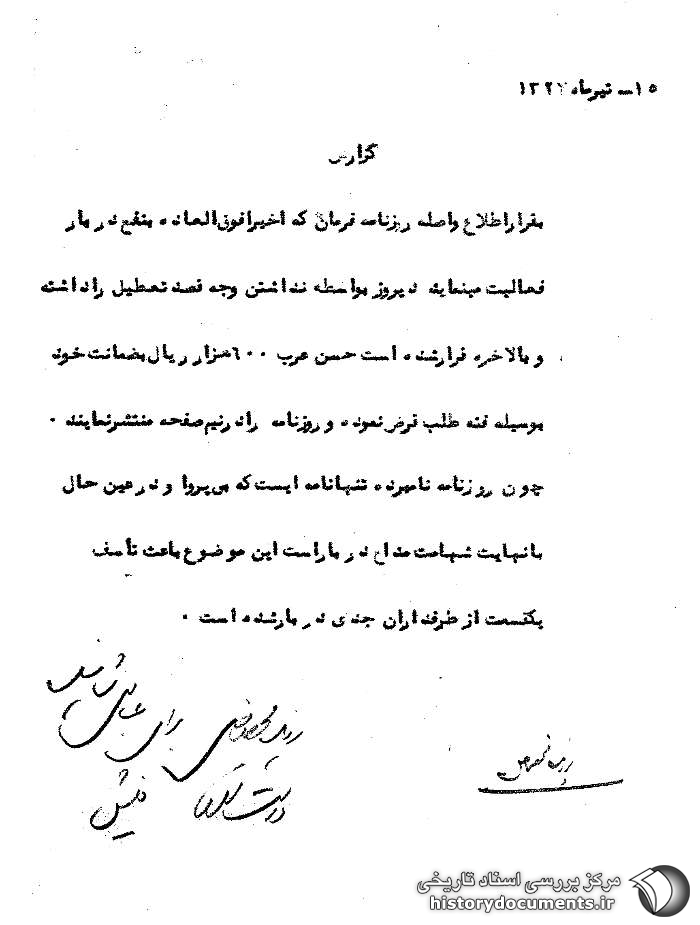 ۱۵ـ تیرماه ۱۳۲۷
گزارش
بقرار اطلاع واصله روزنامه فرمان که اخیرا فوق‌العاده بنفع دربار
فعالیت مینماید دیروز بواسطه نداشتن وجه قصد تعطیل را داشته
و بالاخره قرار شده است حسن عرب ۶۰۰ هزار ریال بضمانت خود
بوسیله فته طلب قرض نموده و روزنامه را در نیم صفحه منتشر نمایند .
چون روزنامه نامبرده تنها نامه ایست که بی پروا و در عین حال
با نهایت شهامت مداح دربار است این موضوع باعث تأسف
یکقسمت از طرفداران جدی دربار شده است .
برای
مرکز بررسی اسناد تاریخی
historydocuments.ir